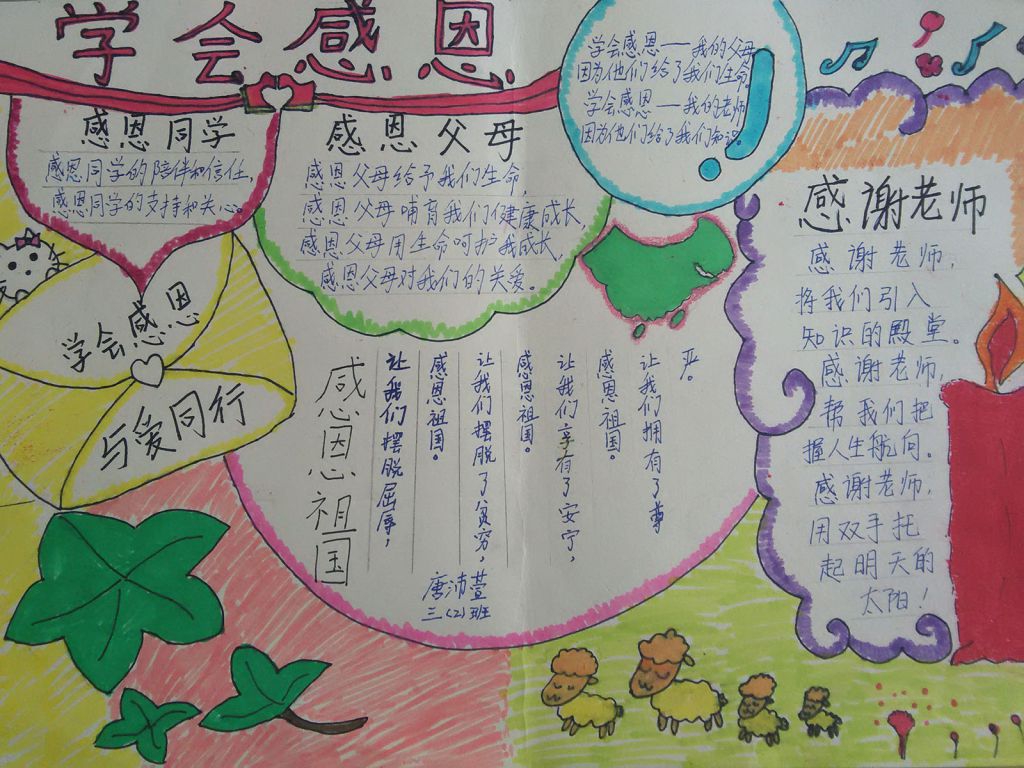 学会感恩
感恩同学
感恩同学的陪伴和信任,
感恩同学的支持和关心。
感恩父母
感恩父母给予我们生命,
感恩父母哺育我们健康成长,
感恩父母用生命呵护我成长,
感恩父母对我们的关爱。
学会感恩——我的父母
因为他们给了我们生命。
学会感恩——我的老师
因为他们给了我们知识。
感谢老师
感谢老师,
将我们引入
知识的殿堂。
感谢老师,
帮我们把
握人生航向。
感谢老师,
用双手托
起明天的
太阳!
学会感恩
与爱同行
感恩祖国
让我们摆脱屈辱,
感恩祖国。
让我们摆脱了贫穷,
感恩祖国。
让我们享有了安宁,
感恩祖国。
让我们拥有了尊
严。
唐沛萱
三(2)班